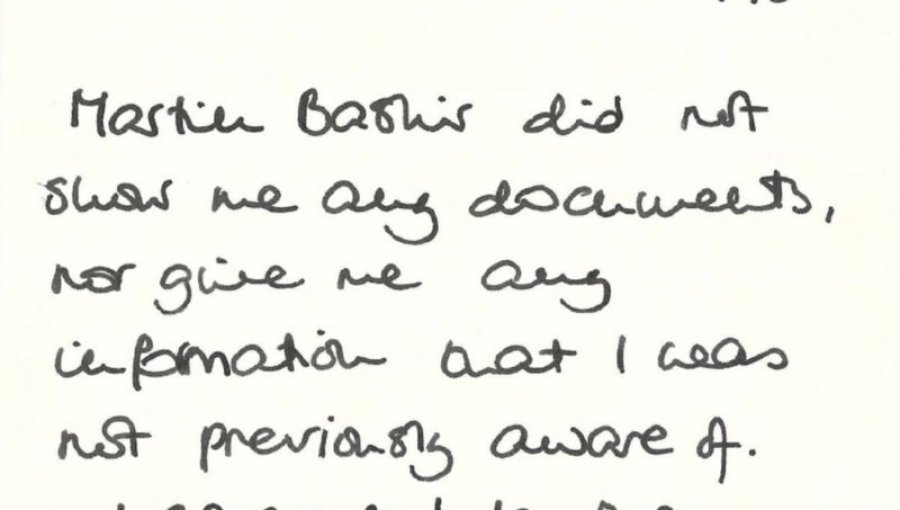 Martin Bashir did not
show me any documents,
nor give me any
information that I was
not previously aware of.